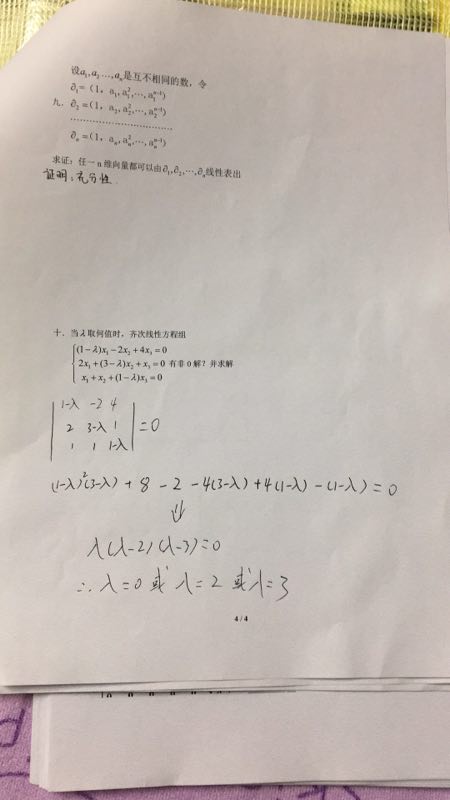 设a₁,a₂…,aₙ是互不相同的数，令
∂₁=（1，a₁,a₁²,…,a₁ⁿ⁻¹)
九．∂₂=(1，a₂,a₂²,…,a₂ⁿ⁻¹)
………………………………
∂ₙ=(1，aₙ,aₙ²,…,aₙⁿ⁻¹)
求证：任一n维向量都可以由∂₁,∂₂,…,∂ₙ线性表出
证明：充分性
十．当λ取何值时，齐次线性方程组
(1−λ)x₁−2x₂+4x₃=0
2x₁+(3−λ)x₂+x₃=0 有非0解？并求解
x₁+x₂+(1−λ)x₃=0
1-λ -2 4
2 3-λ 1 =0
1 1 1-λ
(1-λ)²(3-λ) + 8 - 2 - 4(3-λ) + 4(1-λ) - (1-λ) = 0
⇓
λ(λ-2)(λ-3)=0
∴ λ=0 或 λ=2 或 λ=3
4 / 4